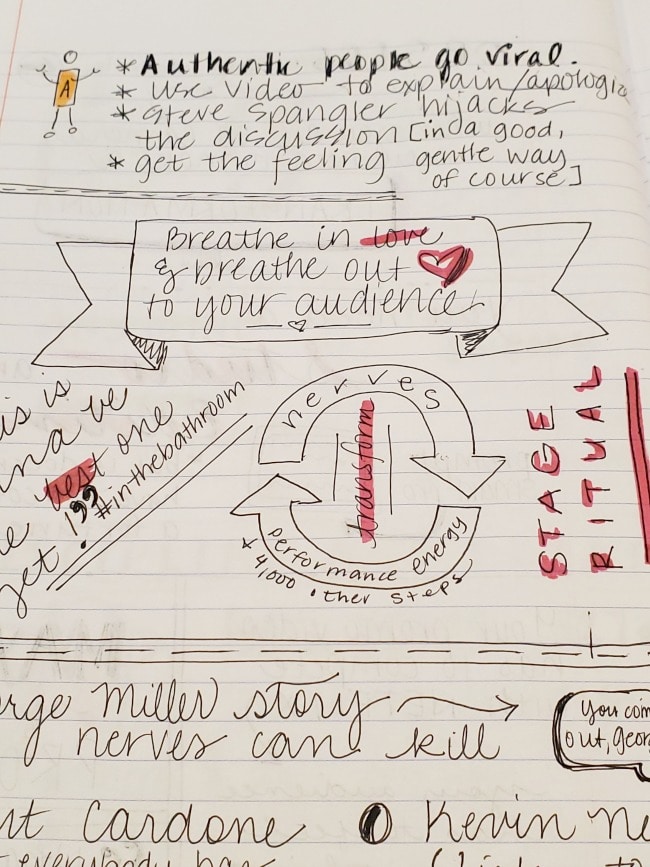 A
*Authentic people go viral.
* use video to explain/apologiz
* Steve Spangler hijacks
the discussion [inda good,
* get the feeling gentle way
of course]
Breathe in love
& breathe out
to your audience
is is
nna be
best one
yet!
#inthebathroom
nerves
transform
performance energy
+ 4,000 other steps
STAGE
RITUAL
rge Miller story
nerves can kill
You com
out, geor
nt Cardone
everybody has
Kevin Ne